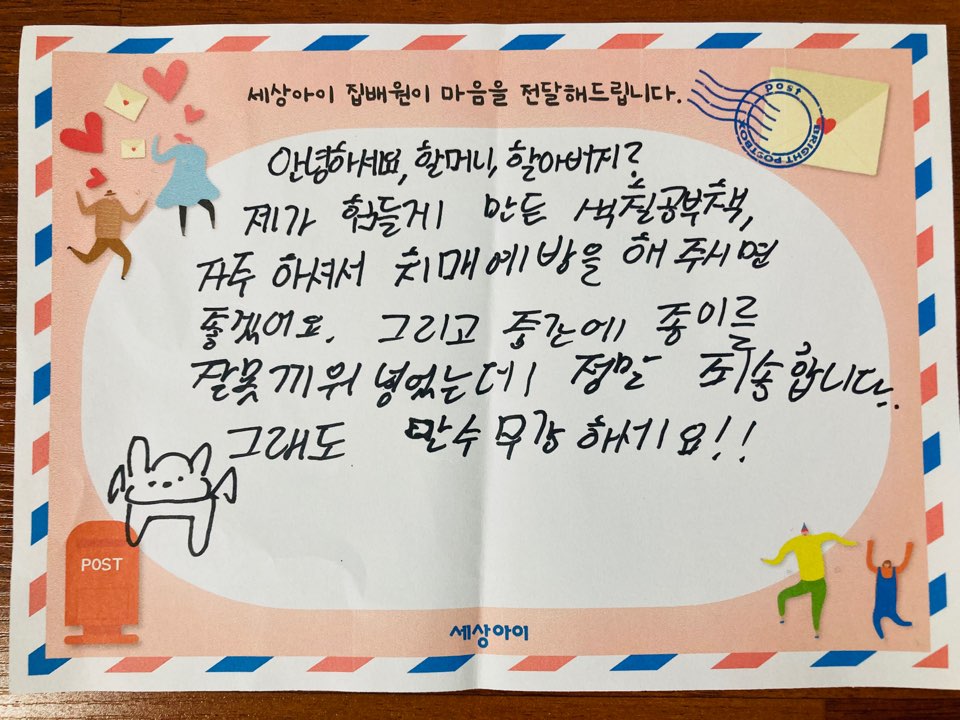 세상아이 집배원이 마음을 전달해드립니다.
post
BRIGHT POSTBOX
안녕하세요, 할머니, 할아버지?
제가 힘들게 만든 색칠공부책,
자주 하셔서 치매예방을 해 주시면
좋겠어요. 그리고 중간에 종이를
잘못 끼워 넣었는데 정말 죄송합니다.
그래도 만수무강하세요!!
POST
세상아이